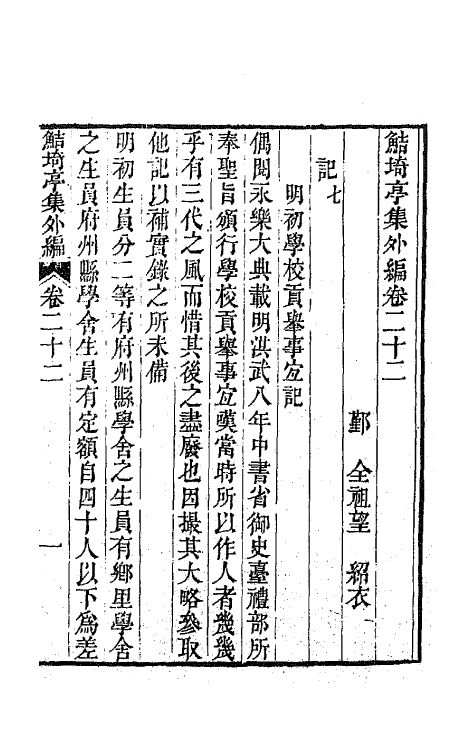 鮚埼亭集外編卷二十二
鄞　全祖望　紹衣
記七
明初學校貢舉事宜記
偶閱永樂大典載明洪武八年中書省御史臺禮部所
奉聖旨頒行學校貢舉事宜嘆當時所以作人者幾幾
乎有三代之風而惜其後之盡廢也因撮其大略參取
他記以補實錄之所未備
明初生員分二等有府州縣學舍之生員有鄉里學舍
之生員府州縣學舍生員有定額自四十人以下為差
鮚埼亭集外編　卷二十二　一